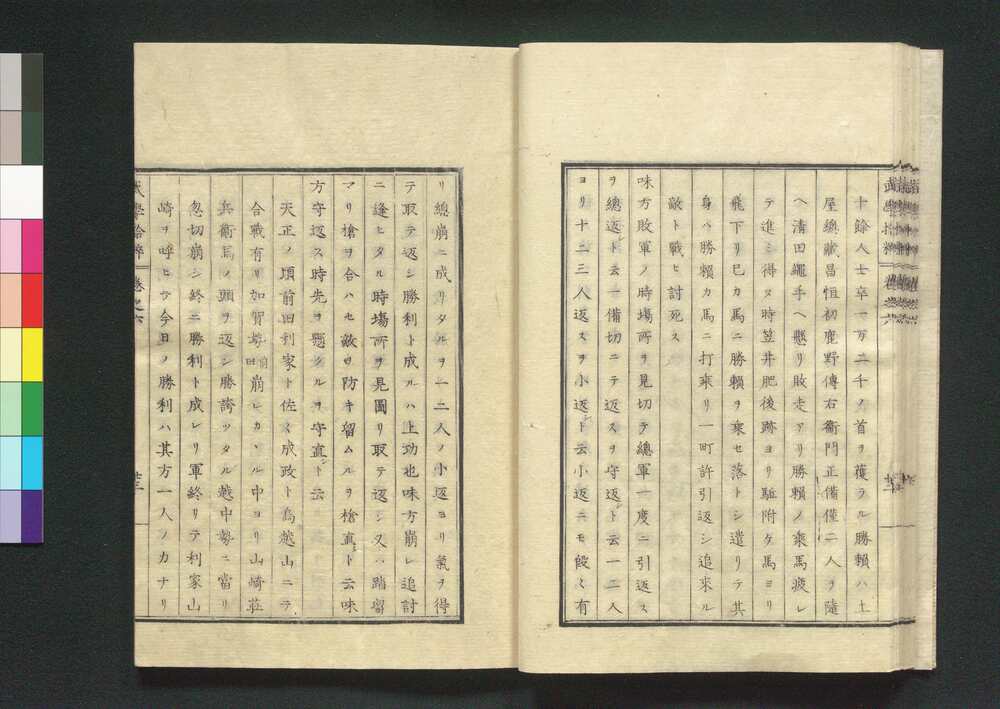 十餘人士卒一万二千ノ首ヲ獲ラル勝賴ハ土
屋總藏昌恒初鹿野傳右衛門正備僅二人ヲ隨
ヘ清田繩手ヘ懸リ敗走アリ勝賴ノ乘馬疲レ
テ進ミ得ヌ時笠井肥後跡ヨリ駈附タ馬ヨリ
飛下リ已カ馬ニ勝賴ヲ乘セ落トシ遣リテ其
身ハ勝賴カ馬ニ打乘リ一町許引返シ追來ル
敵ト戰ヒ討死ス
味方敗軍ノ時場所ヲ見切テ總軍一度ニ引返ス
ヲ總返ト云一備切ニテ返スヲ守返ト云一二人
ヨリ十二三人返スヲ小返ト云小返ニモ段〻有
リ總崩ニ成リタルヲ一二人ノ小返ヨリ氣ヲ得
テ取テ返シ勝利ト成ルハ上功也味方崩レ追討
ニ逢ヒタル時場所ヲ見圖リ取テ返シ又ハ踏留
マリ槍ヲ合ハセ敵ヲ防キ留ムルヲ槍直ト云味
方守返ス時先ヲ懸クルヲ守直ト云
天正ノ頃前田利家ト佐〻成政ト鳥越山ニテ
合戰有リ加賀勢前田崩レカヽル中ヨリ山崎莊
兵衞馬ノ頭ヲ返シ勝誇ツタル越中勢ニ當リ
忽切崩シ終ニ勝利ト成レリ軍終リテ利家山
崎ヲ呼ヒテ今日ノ勝利ハ其方一人ノカナリ
武學拾粹 卷之六